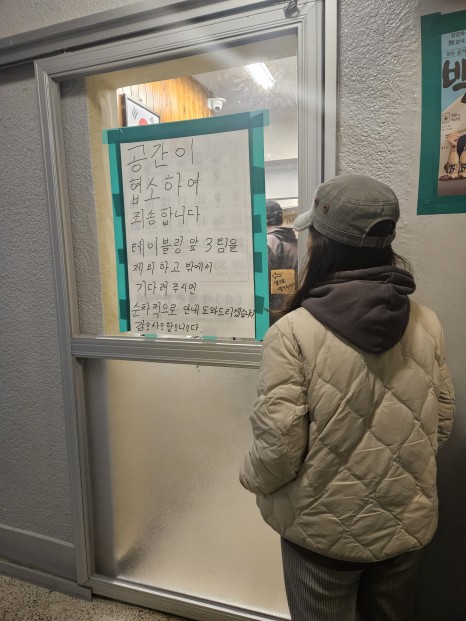 공간이
협소하여
죄송합니다
테이블링 앞 3팀을
제외하고 밖에서
기다려주시면
순차적으로 안내 도와드리겠습니다
감사합니다